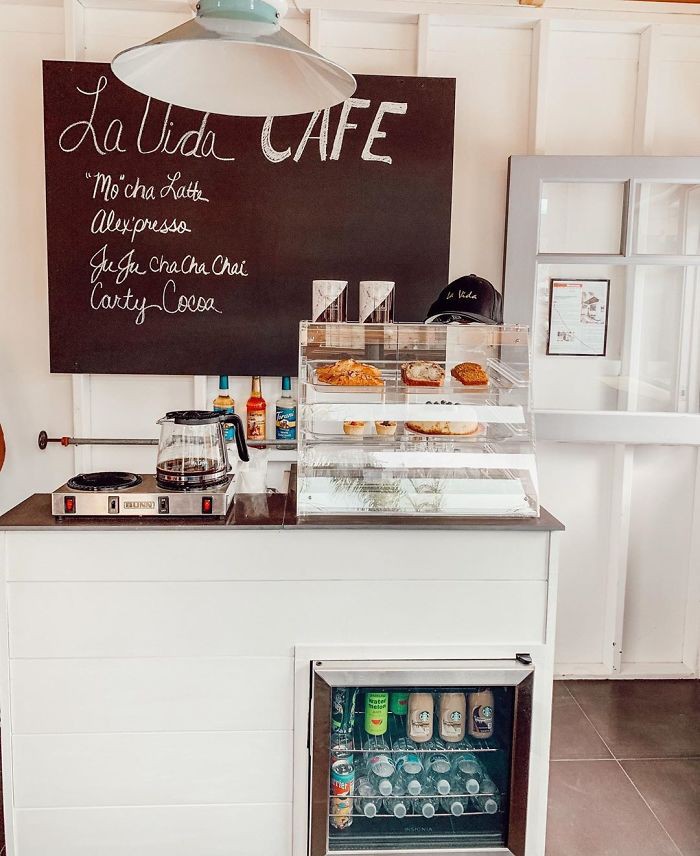 La Vida CAFE
"Mo"cha Latte
Alex'presso
JuJu ChaChaChai
Carty Cocoa
La Vida
Torani
BUNN
water
melon
INSIGNIA